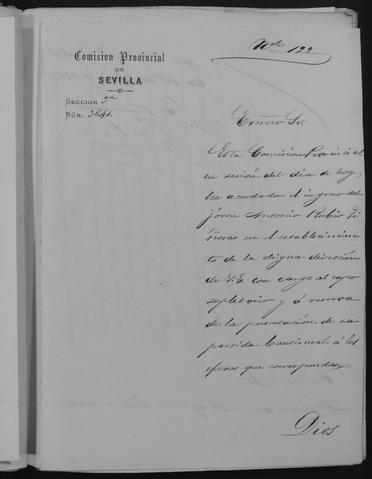 Comision Provincial
DE
SEVILLA
SECCION 3ª
NÚM. 3641.
Nº 122
Exmo Sr.
Esta Comision Provincial
en sesión del dia de hoy
ha acordado el ingreso del
jóven Antonio Rubio
en el establecimien
to de la digna dirección
de V.E. con cargo al cupo
supletorio y á reserva
de la presentación de su
partida bautismal á los
efectos que correspondan
Dios